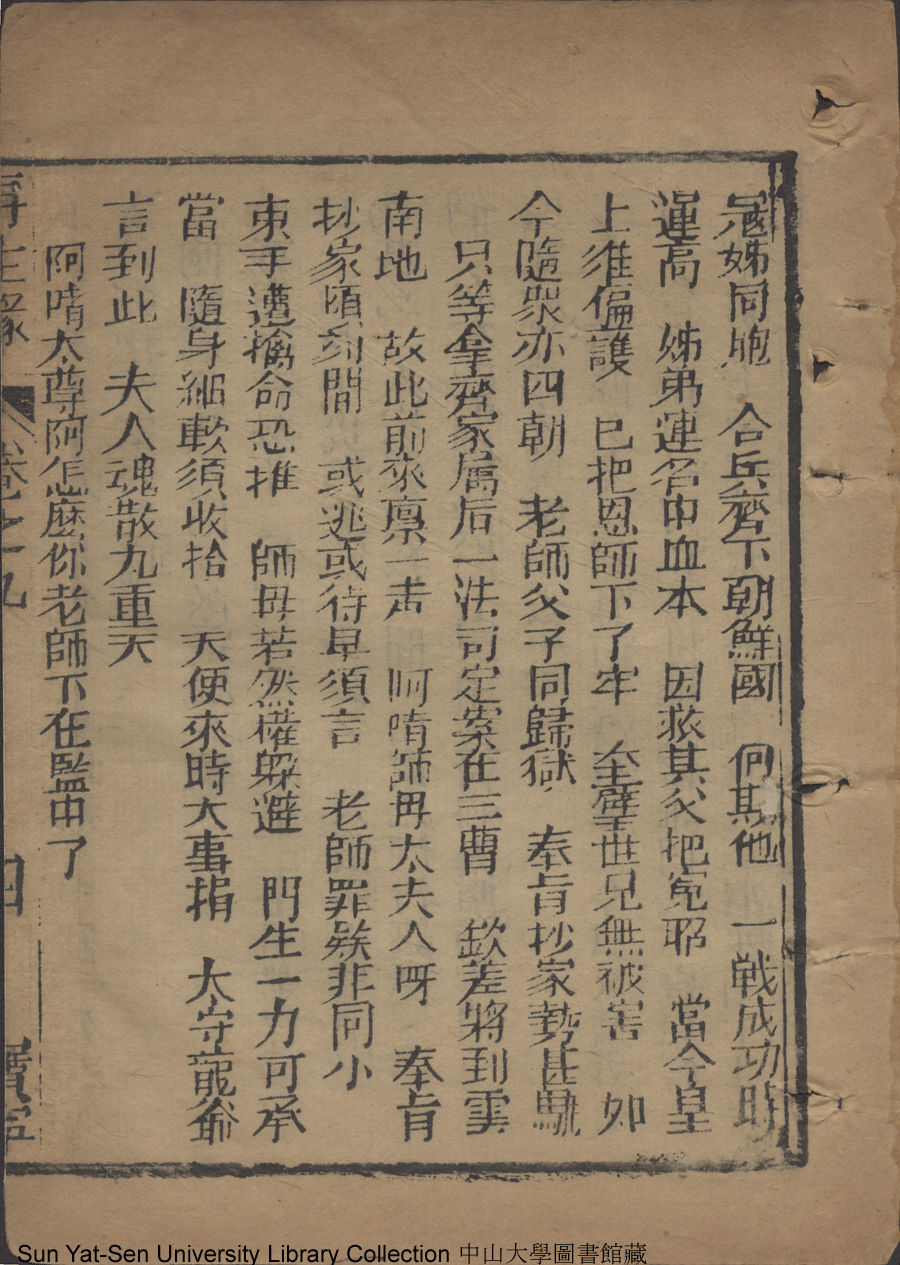 冦姊同胞　合兵齊下朝鮮國　何其他　一戦成功時
運高　姊弟連名中血本　因救其父把寃耶　當今皇
上准偏護　已把恩師下了牢　全望世兄無被害　如
今隨衆亦四朝　老師父子同歸獄　奉肯抄家勢甚
只等拿齊家属后　一法司定案在三曹　欽差將到雲
南地　故此前來禀一声　阿唷師毋太夫人呀　奉肯
抄家頃刻間　或逃或待早須言　老師罪羙非同小
束手遭擒命恐推　師毋若然權躱避　門生一力可承
當　隨身細軟須收拾　天使來時大事捐　大守龍爺
言到此　夫人魂散九重天
阿唷太尊阿怎麽你老師下在監中了
再生緣　卷之十九　四　寳
Sun Yat-Sen University Library Collection 中山大學圖書館藏